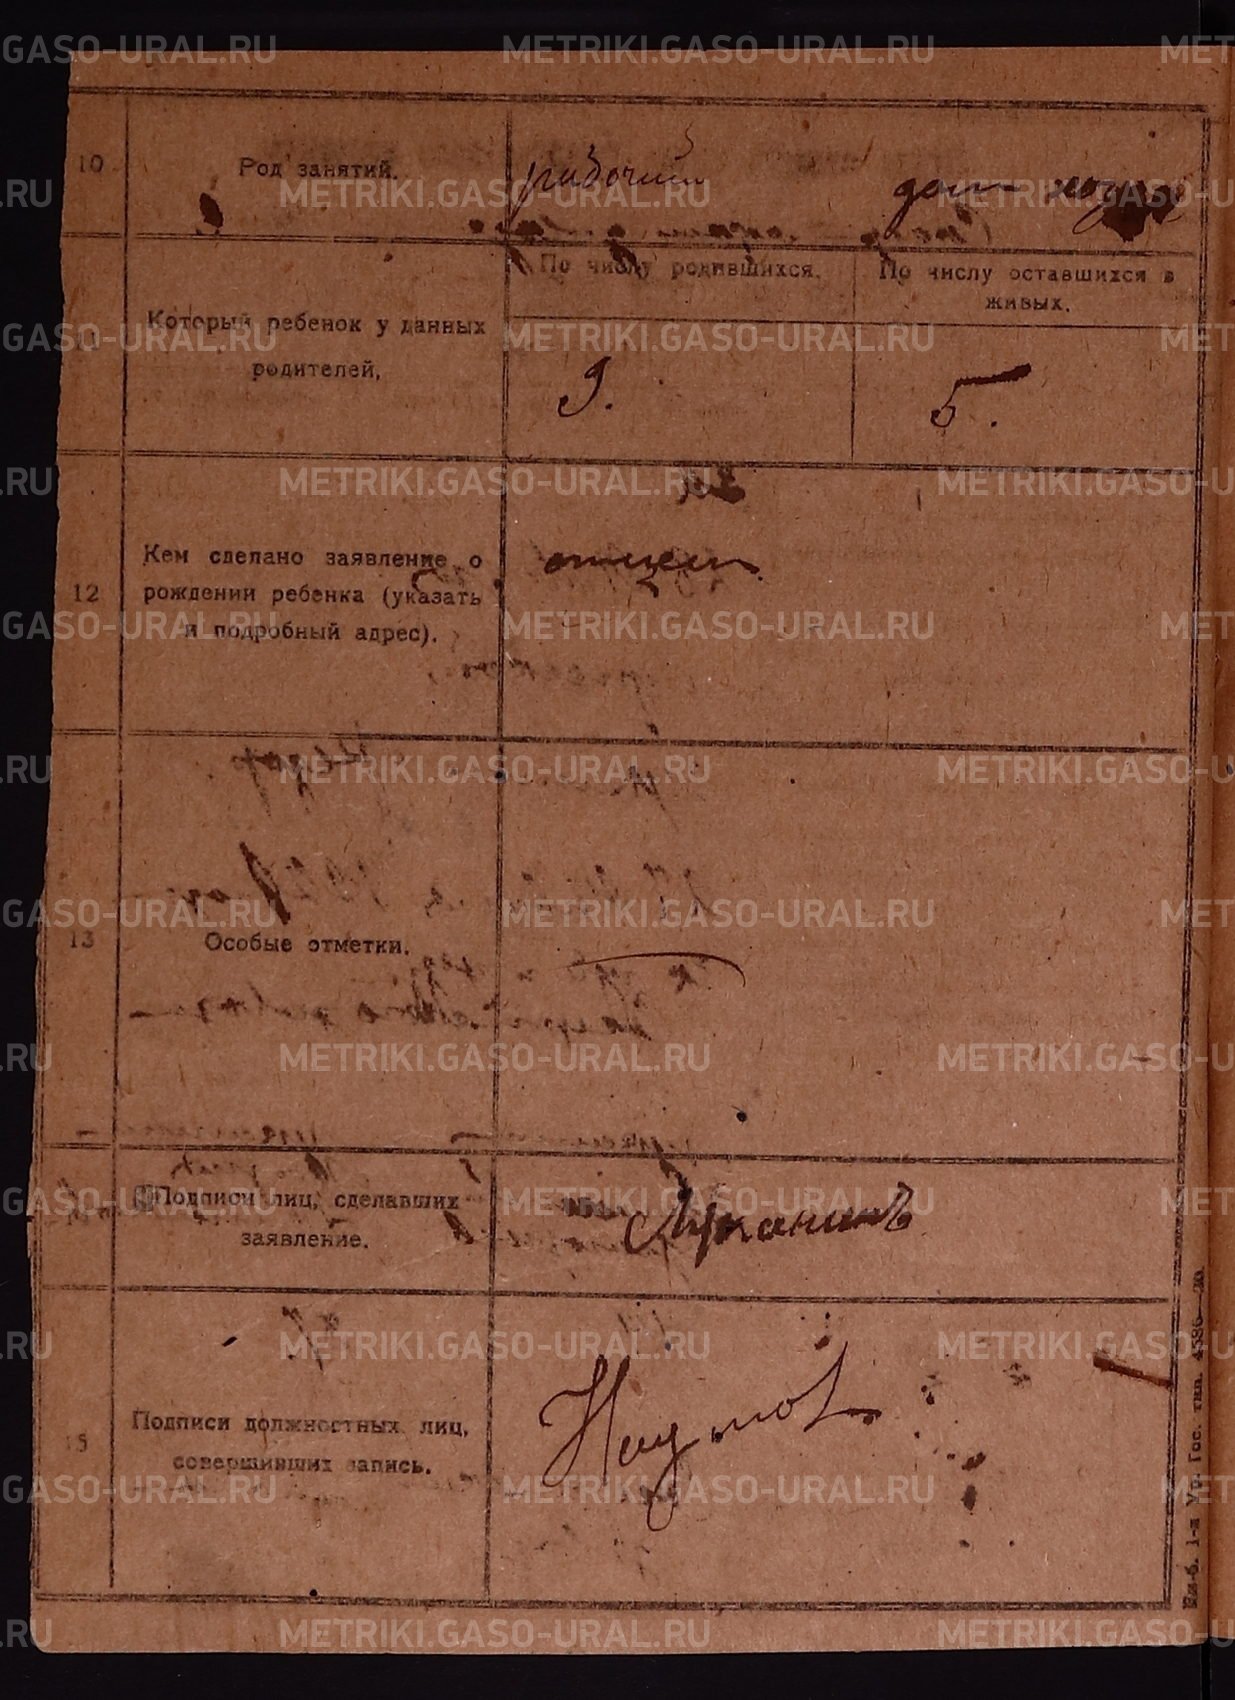 10 Род занятий. рабочий дом. хоз.
По числу родившихся. По числу оставшихся в
живых.
11 Который ребенок у данных
родителей,
9. 5.
12 Кем сделано заявление о
рождении ребенка (указать
и подробный адрес).
отцем
13 Особые отметки.
Подписи лиц, сделавших
заявление.
Лукканинъ
15 Подписи должностных лиц,
совершивших запись.
Наумов
Ек-б. 1-я Ур. Гос. тип. 4386—20
METRIKI.GASO-URAL.RU